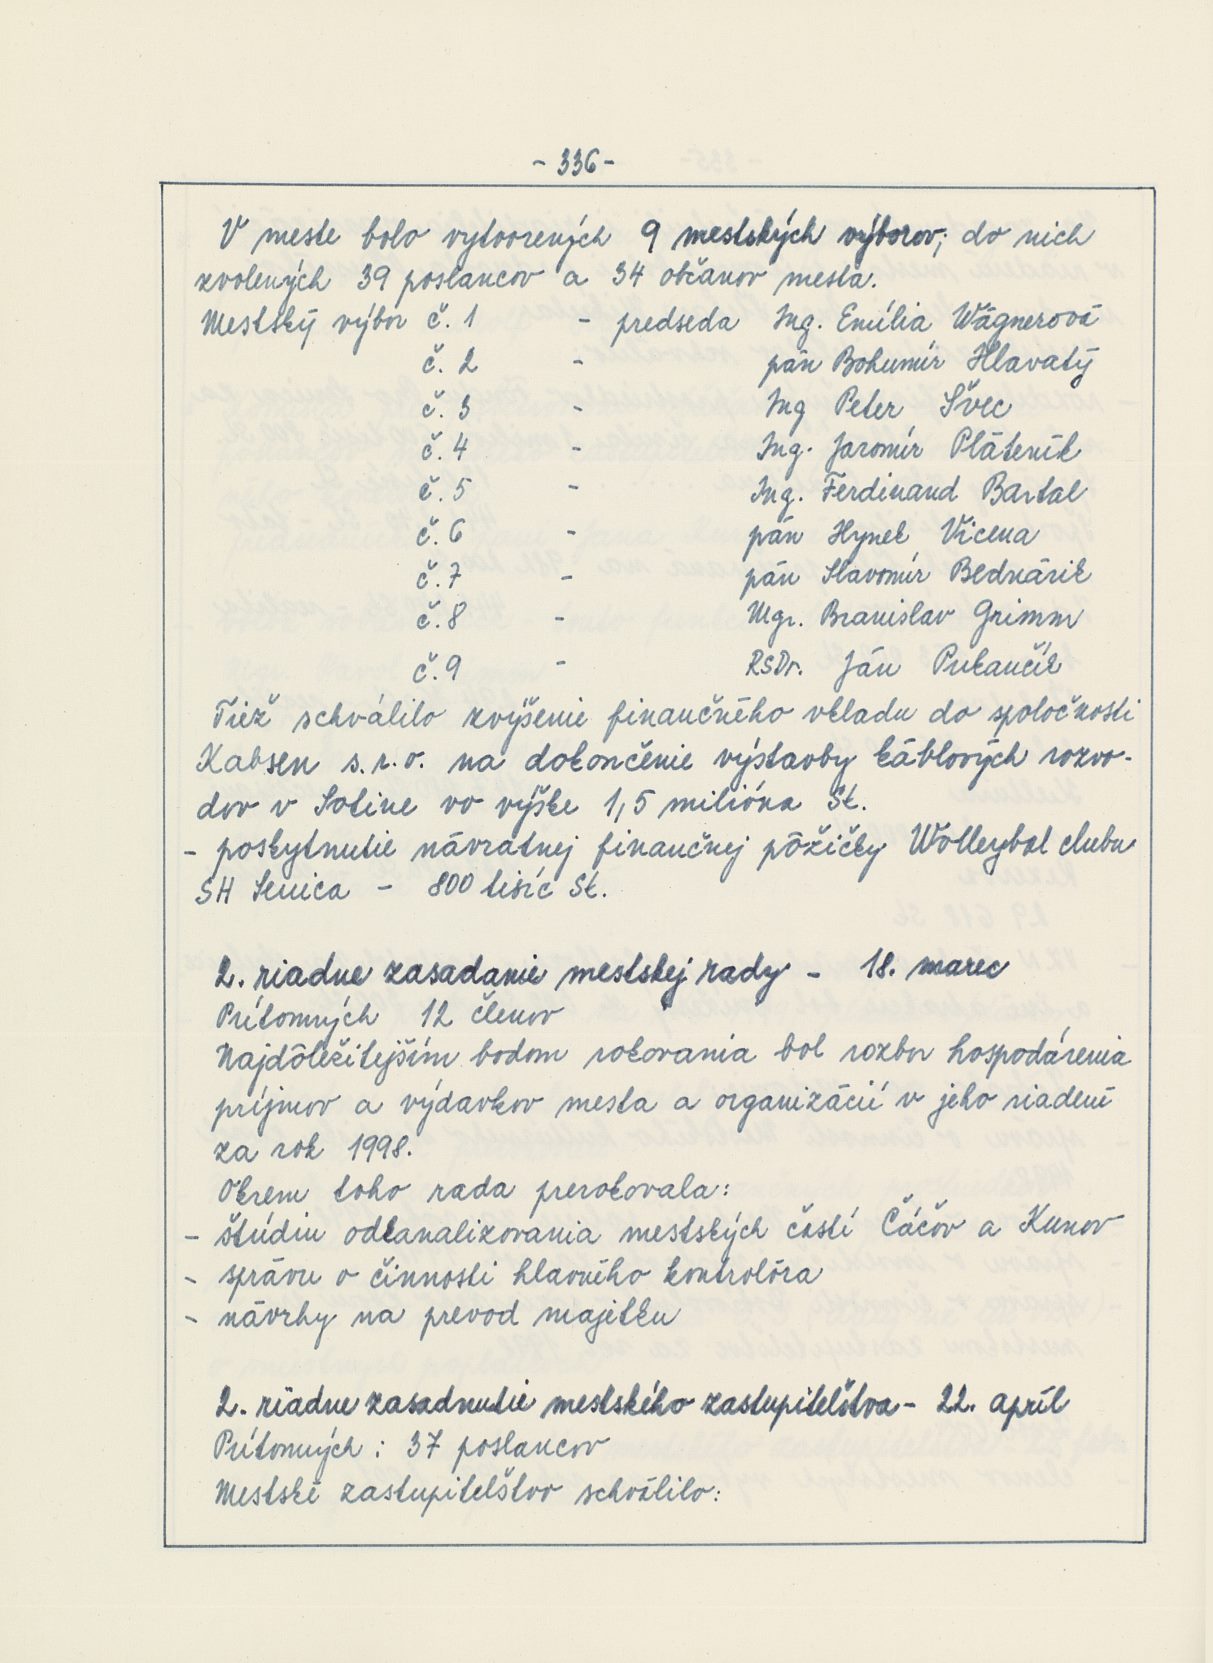 - 336 -
V meste bolo vytvorených 9 mestských výborov, do nich
zvolených 39 poslancov a 34 občanov mesta.
Mestský výbor č. 1 - predseda Ing. Emília Wágnerová
č. 2 - pán Bohumír Hlavatý
č. 3 - Ing Peter Švec
č. 4 - Ing. Jaromír Pláteník
č. 5 - Ing. Ferdinand Bartal
č. 6 - pán Hynek Vicena
č. 7 - pán Slavomír Bednárik
č. 8 - Mgr. Branislav Grimm
č. 9 - RSDr. Ján Pukančík
Tiež schválilo zvýšenie finančného vkladu do spoločnosti
Kabsen s.r.o. na dokončenie výstavby káblových rozvo-
dov v Sotine vo výške 1,5 milióna Sk.
- poskytnutie návratnej finančnej pôžičky Wolleybal clubu
SH Senica - 800 tisíc Sk.
2. riadne zasadanie mestskej rady - 18. marec
Prítomných 12 členov
Najdôležitejším bodom rokovania bol rozbor hospodárenia
príjmov a výdavkov mesta a organizácií v jeho riadení
za rok 1998.
Okrem toho rada prerokovala:
- štúdiu odkanalizovania mestských častí Čáčov a Kunov
- správu o činnosti hlavného kontrolóra
- návrhy na prevod majetku
2. riadne zasadnutie mestského zastupiteľstva - 22. apríl
Prítomných : 37 poslancov
Mestské zastupiteľstvo schválilo: